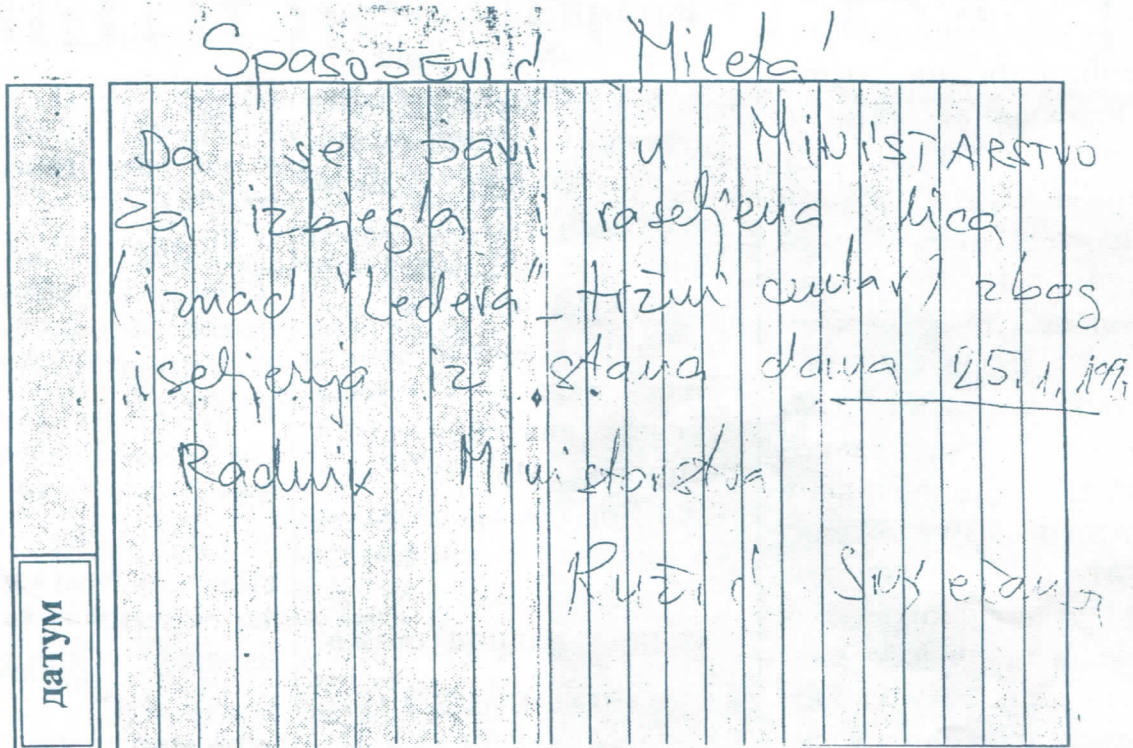 Spasojević Mileta
Da se javi u MINISTARSTVO
za izbjegla i raseljena lica
(iznad "Ledera" tržni centar) zbog
iseljenja iz stana dana 25.1.
Radnik Ministarstva
Ružić
датум